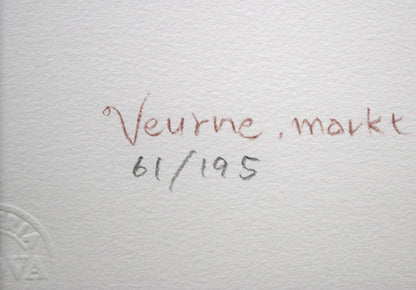 Veurne, markt
61/195